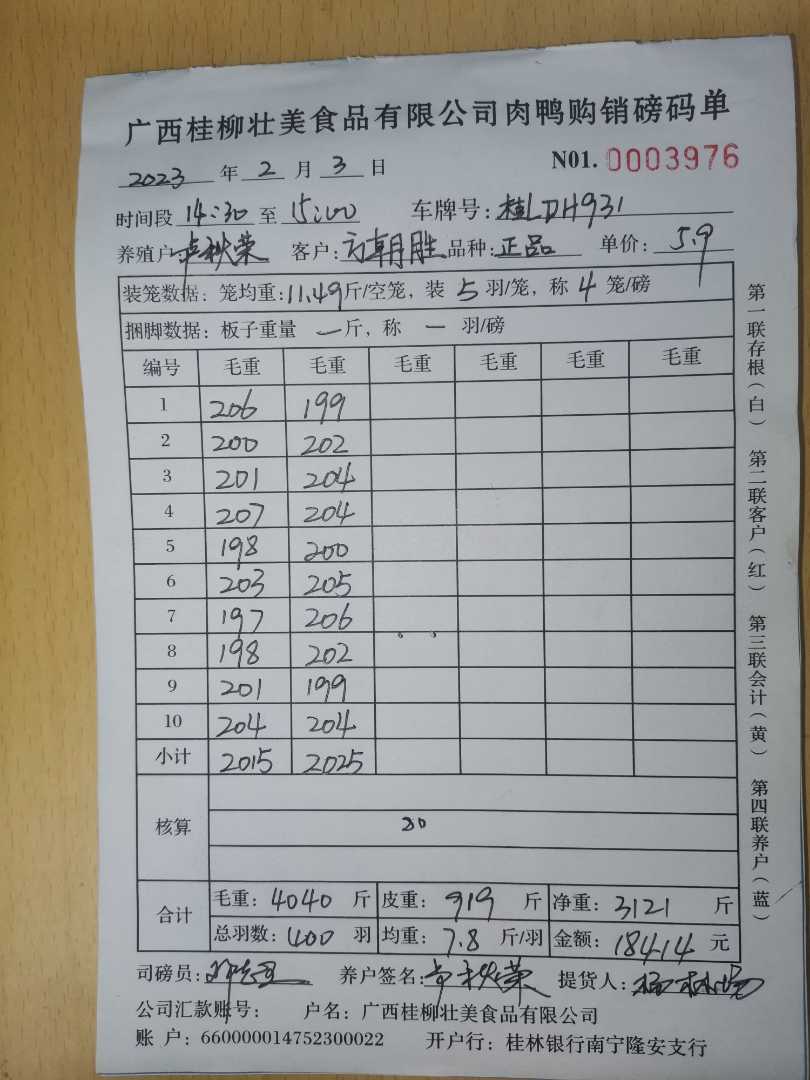 广西桂柳壮美食品有限公司肉鸭购销磅码单
2023 年 2 月 3 日 N01. 0003976
时间段 14:30 至 15:00 车牌号: 桂LDH931
养殖户: 卢秋荣 客户: 方朝胜 品种: 正品 单价: 5.9
装笼数据: 笼均重: 11.49 斤/空笼, 装 5 羽/笼, 称 4 笼/磅
捆脚数据: 板子重量 一 斤, 称 一 羽/磅
编号 毛重 毛重 毛重 毛重 毛重 毛重
1 206 199
2 200 202
3 201 204
4 207 204
5 198 200
6 203 205
7 197 206
8 198 202
9 201 199
10 204 204
小计 2015 2025
核算 20
合计 毛重: 4040 斤 皮重: 919 斤 净重: 3121 斤
总羽数: 400 羽 均重: 7.8 斤/羽 金额: 18414 元
司磅员: 养户签名: 卢秋荣 提货人:
公司汇款账号: 户名: 广西桂柳壮美食品有限公司
账 户: 660000014752300022 开户行: 桂林银行南宁隆安支行
第一联存根(白) 第二联客户(红) 第三联会计(黄) 第四联养户(蓝)